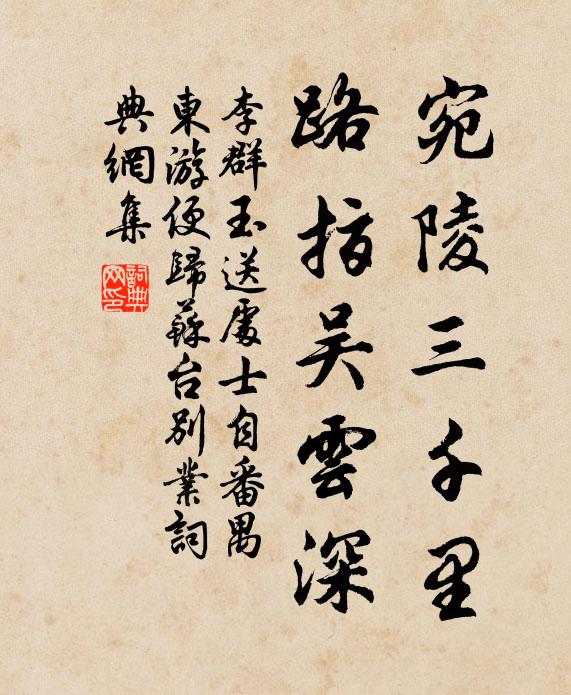 宛陵三千里
路指吴雲深
李群玉送處士自番禺
東游便歸蘇台別業詞
典網集
詞典网印